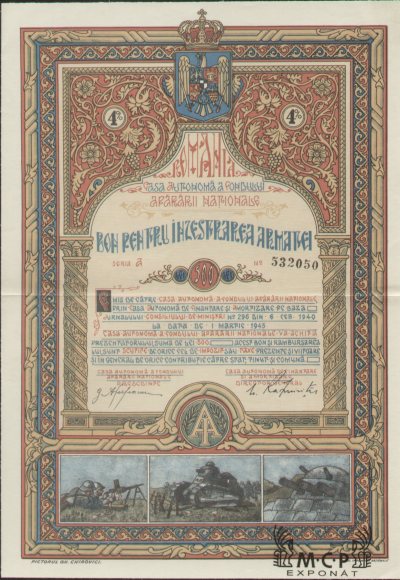 4% 4%
ROMÂNIA
CASA AUTONOMĂ A FONDULUI
APĂRĂRII NAȚIONALE
BON PENTRU INZESTRAREA ARMATEI
SERIA A Nº 532050
LEI 500 LEI
EMIS DE CĂTRE CASA AUTONOMĂ A FONDULUI APĂRĂRII NAȚIONALE
PRIN CASA AUTONOMĂ DE FINANȚARE ȘI AMORTIZARE PE BAZA
JURNALULUI CONSILIULUI DE MINIȘTRI Nº 296 DIN 6 FEB 1940
LA DATA DE 1 MARTIE 1945
CASA AUTONOMĂ A FONDULUI APĂRĂRII NAȚIONALE VA ACHITA
PREZENTATORULUI SUMA DE LEI 500 ACEST BON ȘI RAMBURSAREA
LUI SUNT SCUTITE DE ORICE FEL DE IMPOZIT SAU TAXE PREZENTE ȘI VIITOARE
ȘI IN GENERAL DE ORICE CONTRIBUȚIE CĂTRE STAT, ȚINUT ȘI COMUNĂ
CASA AUTONOMĂ A FONDULUI CASA AUTONOMĂ DE FINANȚARE
APĂRĂRII NAȚIONALE ȘI AMORTIZARE
PREȘEDINTE DIRECTOR GENERAL
PICTORUL GH. CHIROVICI.
M·C·P
EXPONAT